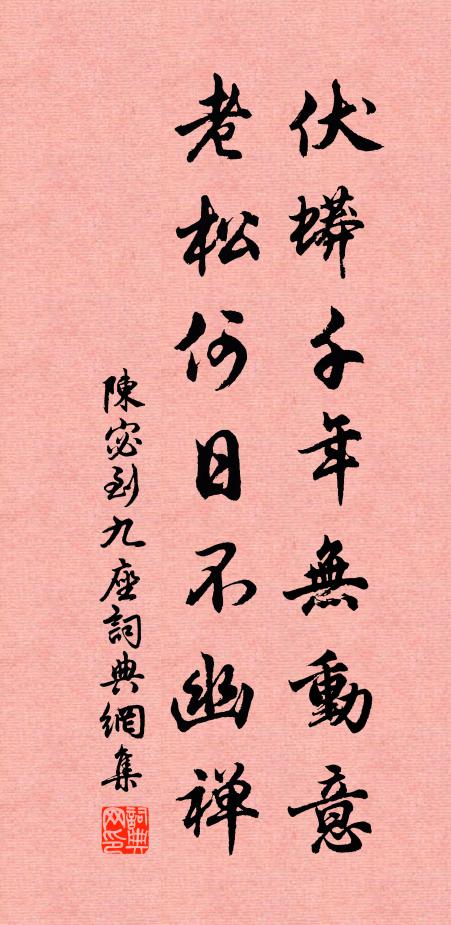 伏蟒千年無動意
老松何日不幽禪
陳宓到九座詞典網集
詞典网印